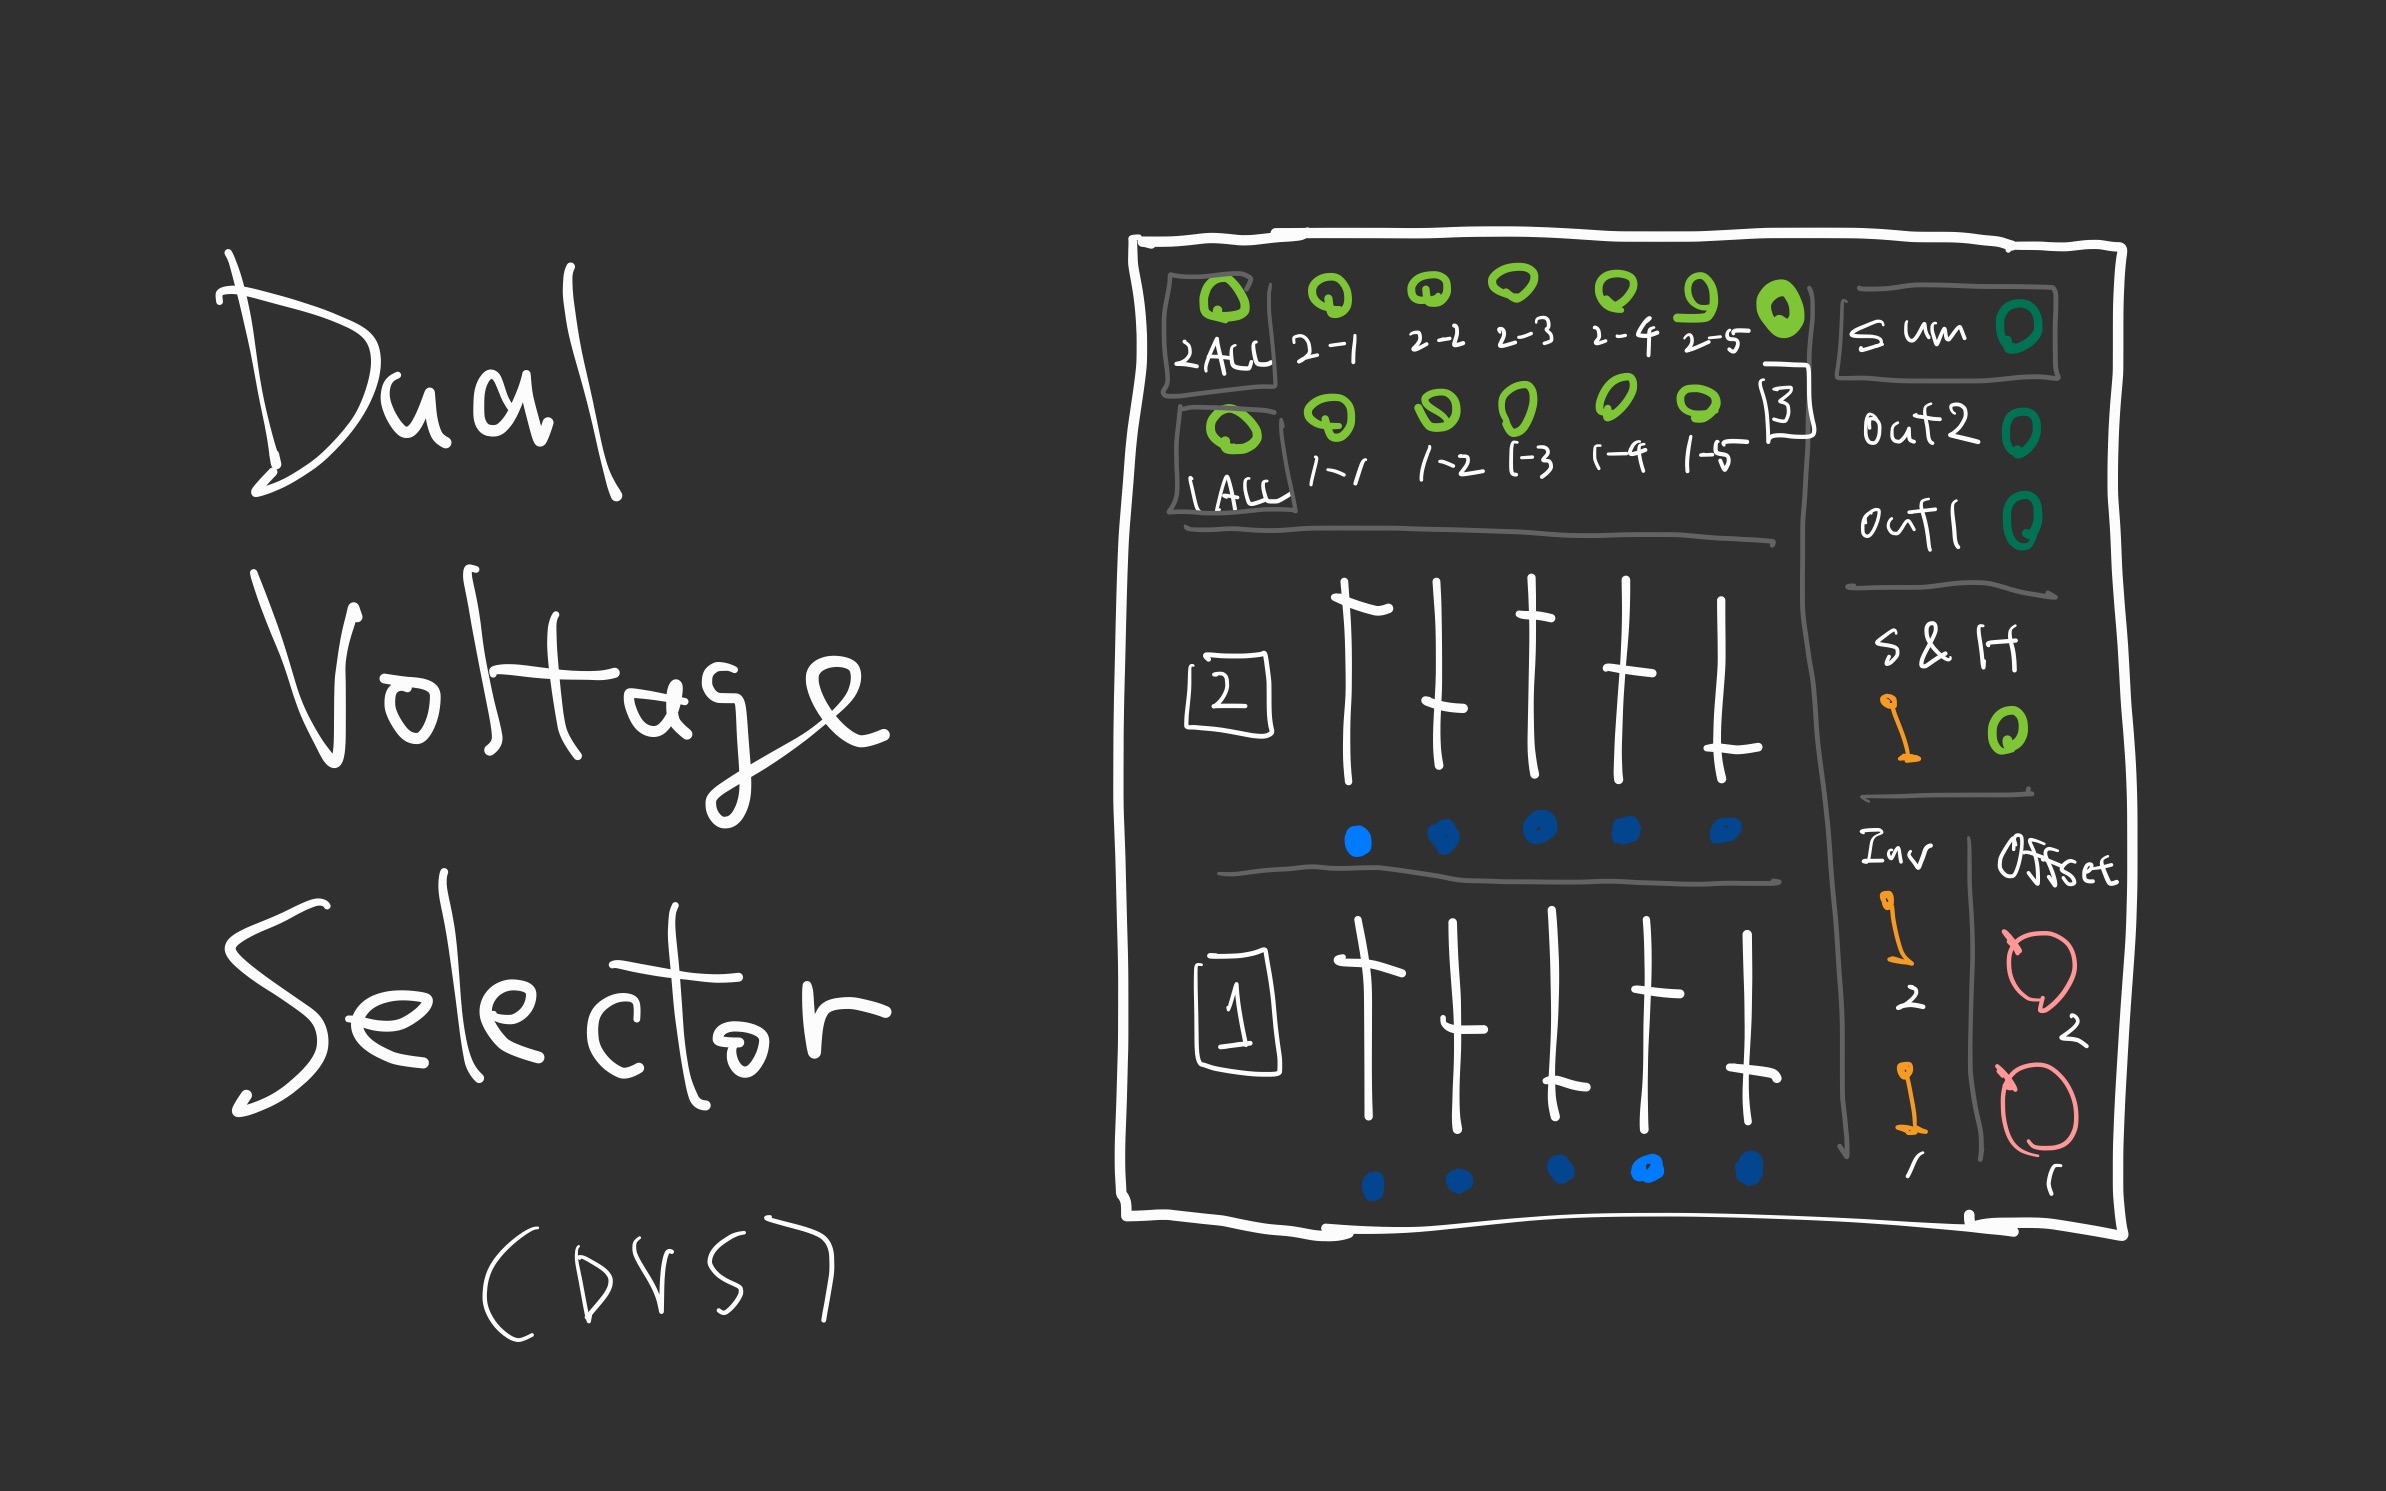 Dual
Voltage
Selector
(DVS)
2ALL 2-1 2-2 2-3 2-4 2-5
3
1ALL 1-1 1-2 1-3 1-4 1-5
Sum
out2
out1
S&H
2
Inv
Offset
2
2
1
1
1